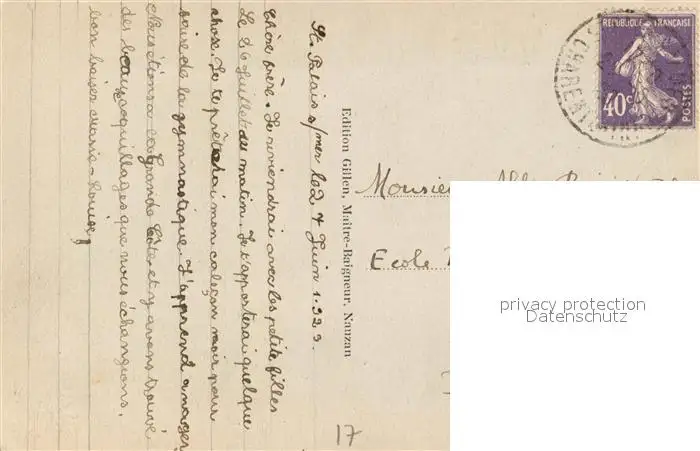 St. Palais s/mer le 27 Juin 1.923.
Chère frère. Je reviendrai avec les petite filles
Le 26 Juillet du matin. Je t'apporterai quelque
chose. Je te prêterai mon caleçon noir pour
faire de la gymnastique. J'apprend a nager
Nous étions a la grande Côte et y avons trouvé
des beaux coquillages que nous échangions.
bon baiser marie-Louise,
Edition Gillen, Maître-Baigneur, Nauzan
REPUBLIQUE FRANÇAISE
40c
POSTES
Ecole
17
privacy protection
Datenschutz